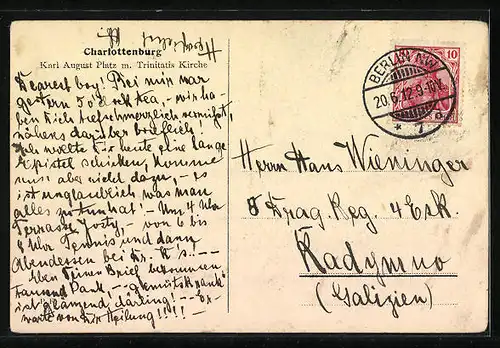 Charlottenburg
Karl August Platz m. Trinitatis Kirche
Dearest boy! Bei mir war
gestern 5 o'clock tea, - wir ha-
ben Dich herzlich vermißt,
näheres darüber brieflich!
Ich wollte Dir heute eine lange
Epistel schicken, komme
nur aber nicht dazu, - es
ist unglaublich was man
alles zu tun hat! - Um 4 Uhr
Terrasse Josty, - von 6 bis
8 Uhr Tennis und dann
Abendessen bei
Eben Deinen Brief bekommen
tausend Dank, -- "gemütskrank"
ist glänzend, darling! -- Er-
warte von Dir Heilung!!!!
BERLIN NW
20.6.12.9-10V.
* 7 a
10
Herrn Hans Wieninger
8 Drag. Reg. 4 Esk.
Radymno
(Galizien)